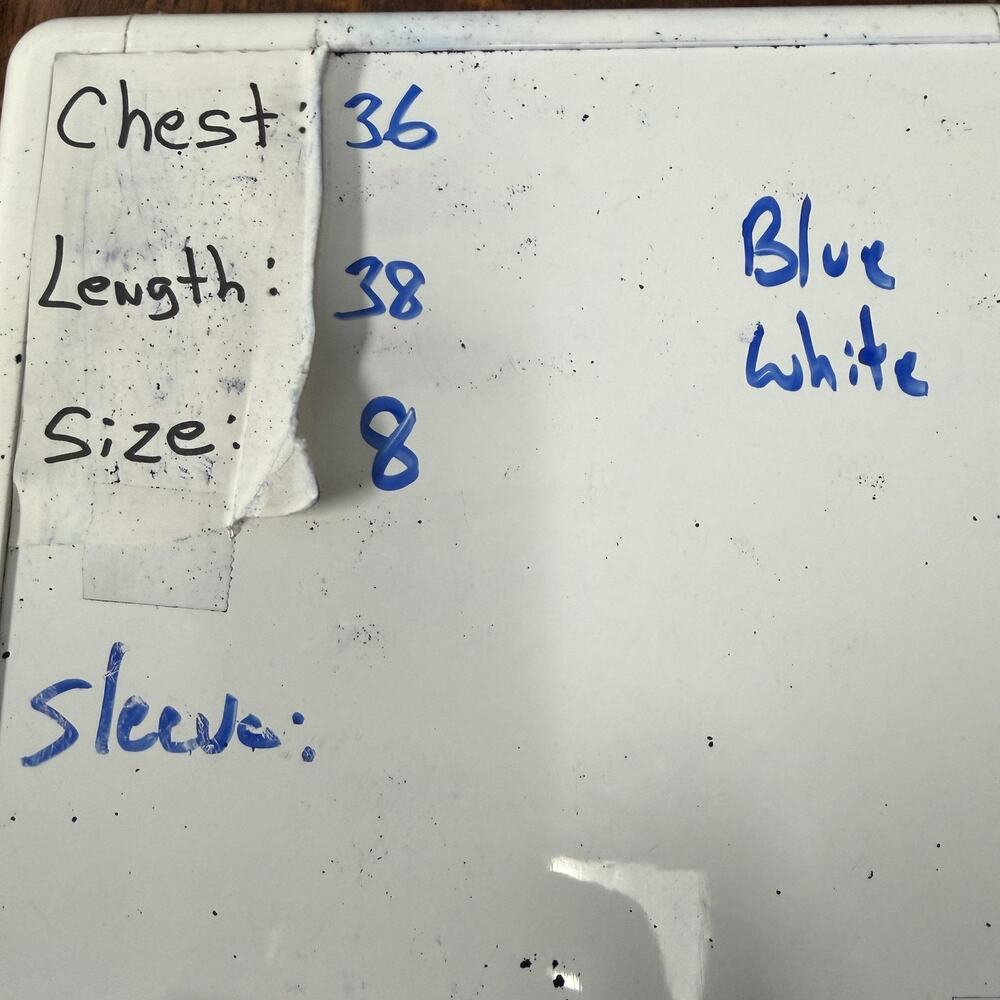 Chest: 36
Length: 38
Size: 8
Blue
White
Sleeve: